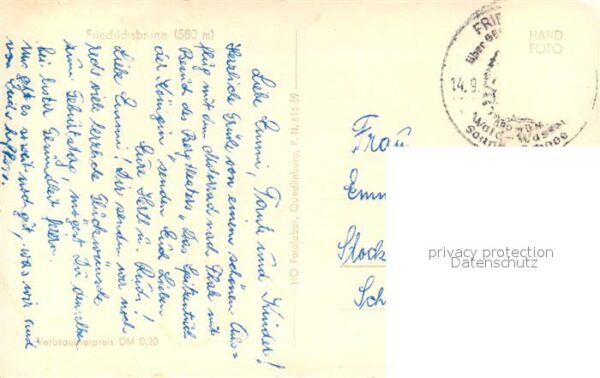 Friedrichsbrunn (580 m)
Liebe Emmi, Tanti und Kinder!
Herzliche Grüße von einem schönen Aus=
flug mit dem Motorrad nach Thale mit
Besuch des Bergtheaters, "Das Spitzentuch
der Königin" senden Euch Lieben
Eure Herta u. Rudi!
Liebe Emmi! Dir senden wir noch
recht viele herzliche Glückwünsche
zum Geburtstag, mögest Du denselben
bei bester Gesundheit feiern.
Uns geht es soweit noch gut, was wir auch
von Euch hoffen.
Verbraucherpreis DM 0,20
HO Fotolabor, Quedlinburg, P. N. 618 59
HAND
FOTO
FRIE
über
14.9.
Wald - Wasser
Sonne
Frau
Emm
Stock
Sch
privacy protection
Datenschutz